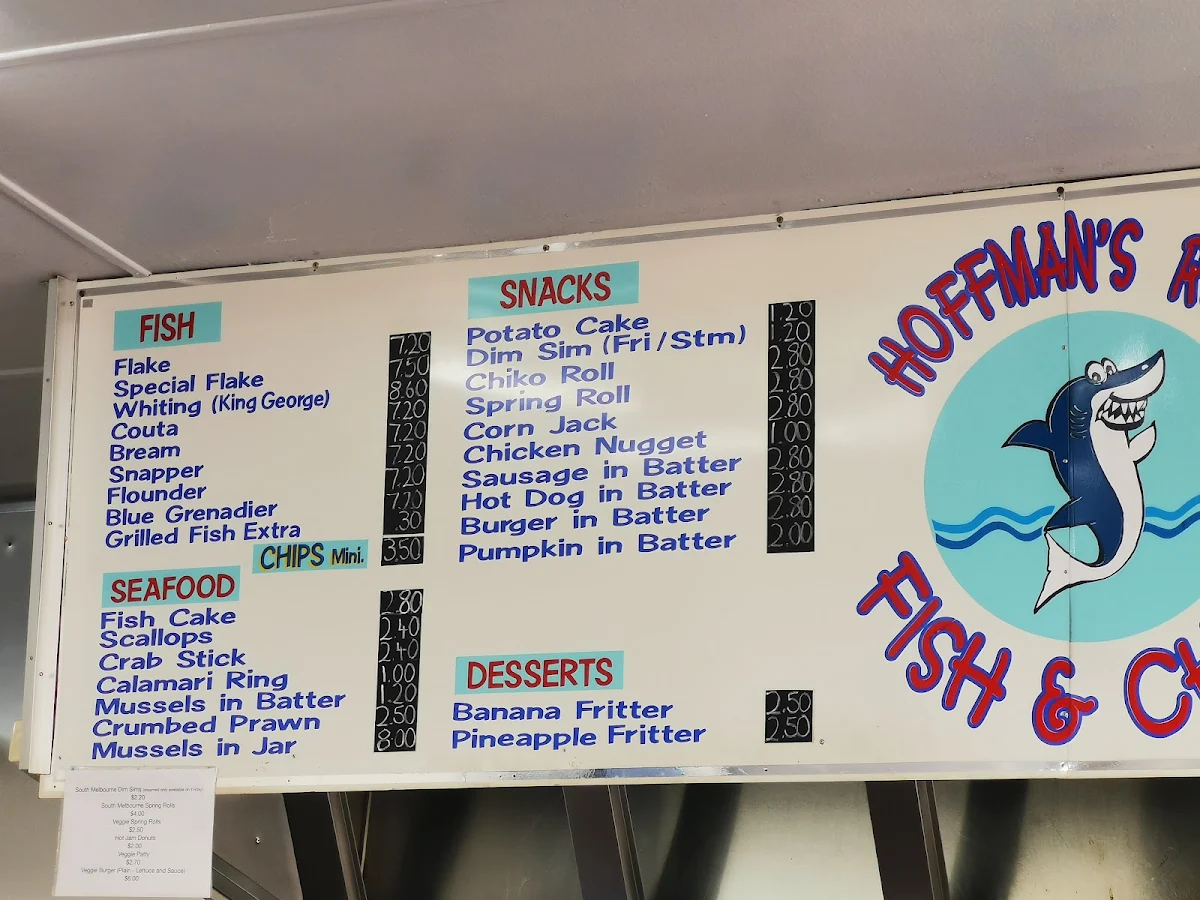 FISH
Flake 7.20
Special Flake 7.50
Whiting (King George) 8.60
Couta 7.20
Bream 7.20
Snapper 7.20
Flounder 7.20
Blue Grenadier 7.20
Grilled Fish Extra .30
CHIPS Mini. 3.50
SEAFOOD
Fish Cake 2.80
Scallops 2.40
Crab Stick 2.40
Calamari Ring 1.00
Mussels in Batter 1.20
Crumbed Prawn 2.50
Mussels in Jar 8.00
SNACKS
Potato Cake 1.20
Dim Sim (Fri/Stm) 1.20
Chiko Roll 2.80
Spring Roll 2.80
Corn Jack 2.80
Chicken Nugget 1.00
Sausage in Batter 2.80
Hot Dog in Batter 2.80
Burger in Batter 2.80
Pumpkin in Batter 2.00
DESSERTS
Banana Fritter 2.50
Pineapple Fritter 2.50
HOFFMAN'S
FISH &
South Melbourne Dim Sims
$2.20
South Melbourne Spring Rolls
$4.00
Veggie Spring Rolls
$2.50
Hot Jam Donuts
$2.00
Veggie Patty
$2.70
Veggie Burger (Plain - Lettuce and Sauce)
$6.00